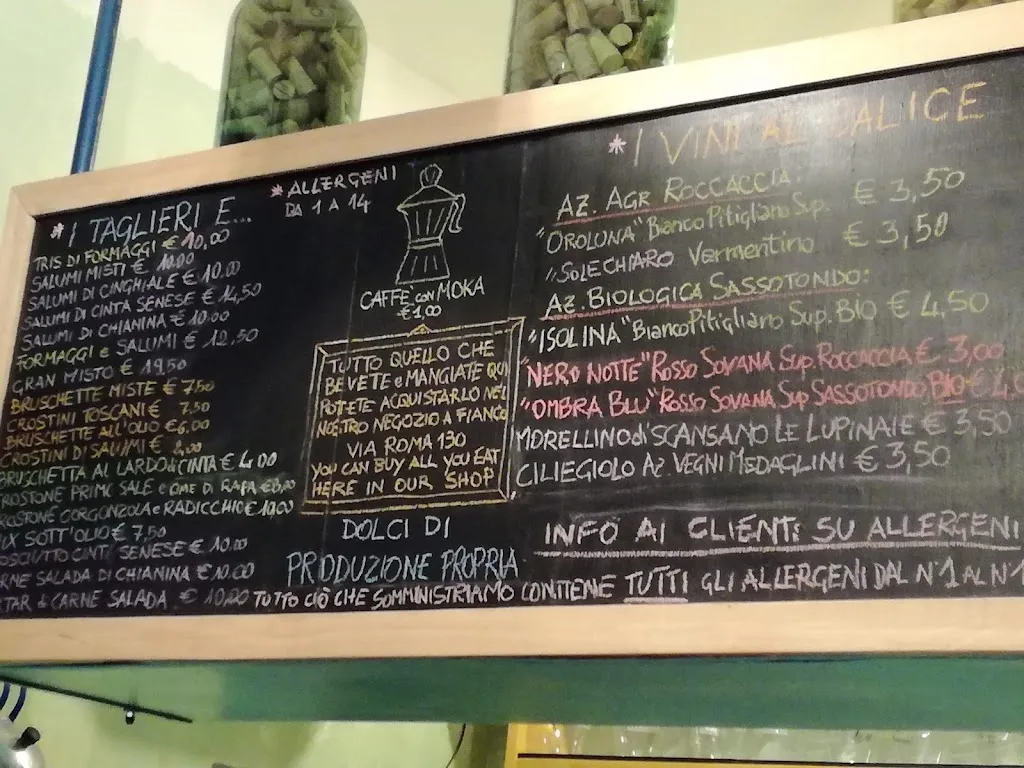 * I TAGLIERI E...
TRIS DI FORMAGGI € 10,00
SALUMI MISTI € 10.00
SALUMI DI CINGHIALE € 10.00
SALUMI DI CINTA SENESE € 14,50
SALUMI DI CHIANINA € 10.00
FORMAGGI e SALUMI € 12,50
GRAN MISTO € 19,50
BRUSCHETTE MISTE € 7,50
CROSTINI TOSCANI € 7,50
BRUSCHETTE ALL'OLIO € 6,00
CROSTINI DI SALUMI €
BRUSCHETTA AL LARDO di CINTA € 4,00
CIME DI RAPA
GORGONZOLA e RADICCHIO € 10,00
SOTT'OLIO € 7,50
SENESE € 10.00
SALADA DI CHIANINA € 10.00
CARNE SALADA € 10,00
* ALLERGENI
DA 1 A 14
CAFFE' con MOKA
€ 1,00
TUTTO QUELLO CHE
BEVETE e MANGIATE QUI
POTETE ACQUISTARLO NEL
NOSTRO NEGOZIO A FIANCO
VIA ROMA 130
YOU CAN BUY ALL YOU EAT
HERE IN OUR SHOP
DOLCI DI
PRODUZIONE PROPRIA
* I VINI AL CALICE
AZ. AGR ROCCACCIA:
"OROLUNA" Bianco Pitigliano Sup. € 3,50
"SOLECHIARO Vermentino € 3,50
AZ. BIOLOGICA SASSOTONDO:
"ISOLINA" Bianco Pitigliano Sup. BIO € 4,50
"NERO NOTTE" ROSSO SOVANA SUP. ROCCACCIA € 3,00
"OMBRA BLU" ROSSO SOVANA SUP SASSOTONDO, BIO €
MORELLINO di SCANSANO LE LUPINAIE € 3,50
CILIEGIOLO AZ VEGNI MEDAGLINI € 3,50
INFO AI CLIENTI SU ALLERGENI
TUTTO CIÒ CHE SOMMINISTRIAMO CONTIENE TUTTI GLI ALLERGENI DAL N°1 AL